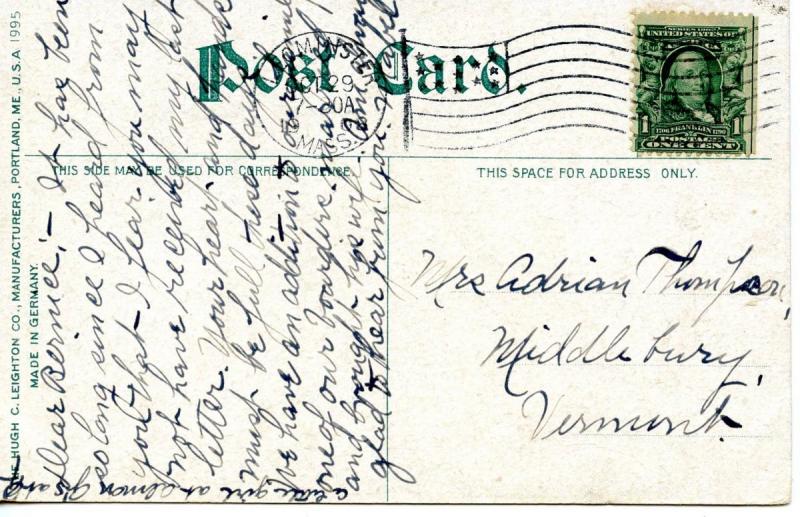 Post Card.
THIS SIDE MAY BE USED FOR CORRESPONDENCE.
THIS SPACE FOR ADDRESS ONLY.
HUGH C. LEIGHTON CO., MANUFACTURERS, PORTLAND, ME., U.S.A. 1995
MADE IN GERMANY.
OCT 29
MASS.
SERIES 1902
UNITED STATES OF
AMERICA
1706 FRANKLIN 1790
1 1
POSTAGE
ONE CENT
Mrs Adrian Thompson,
Middlebury,
Vermont
Dear Bernice:- It has been
so long since I heard from
you that I fear you may
not have received my last
letter. Your heart and hands
must be full these days.
We have an addition to
one of our boarders
and brought his wife
glad to hear from you
girl at Almon G's